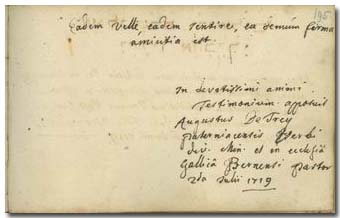 195
Eadem velle, eadem sentire, ea demum firma
amicitia est.
In devotissimi animi
Testimonium apposuit
Augustus DeTrey
paterniacensis Verbi
div. Min. et in ecclesiâ
Gallicâ Bernensi Pastor
2da Julii 1719